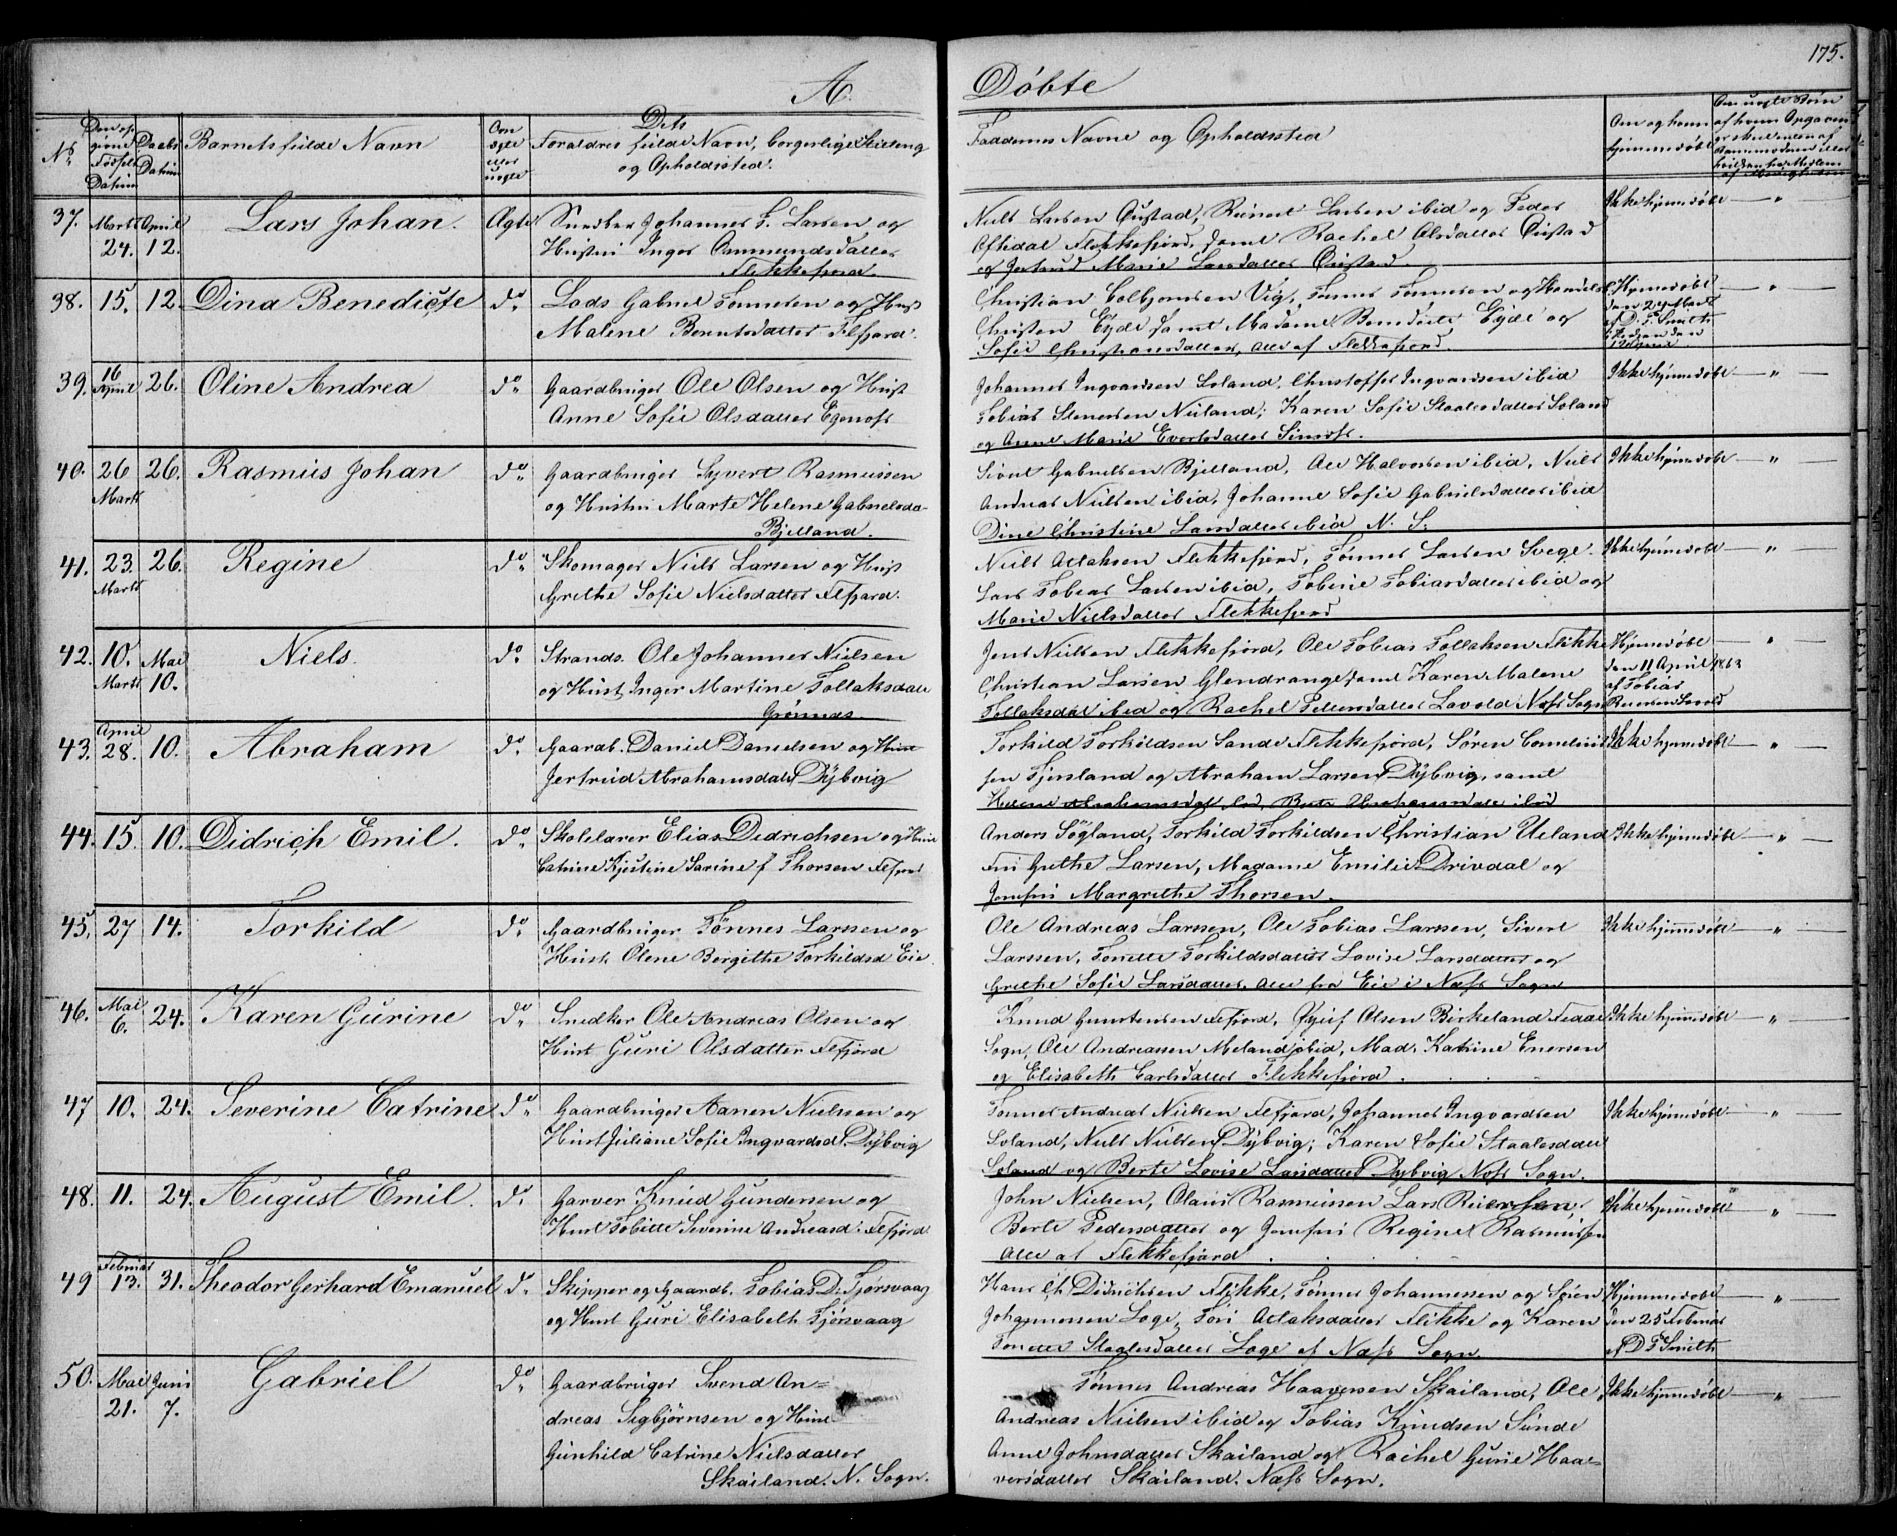 175.
A. Döbte
No
Barnets fulde Navn
Dets
Forældres fulde Navn, borgerlige Stilling
og Opholdssted.
Faddernes Navne og Opholdssted
Om og hvem
hjemmedøbt
37. Marts 24. April 12. Lars Johan. Ægte Snedker Johannes F. Larsen og
Hustru Inger Ommundsdatter
Flekkefjord.
Niels Larsen Øistad, Reinert Larsen ibid og Peder
Flekkefjord, samt Rachel Olsdatter Øistad
og Jertrud Marie Larsdatter Øistad.
Ikke hjemmedøbt — " —
38. 15. 12. Dina Benedicte do Lods Gabriel Tønnesen og Hust
Malene Berntsdatter Flfjord.
Christian Colbjørnsen Vig, Tønnes Tønnesen og
Christen Eyde samt Madame Benedicte Eyde og
Sofie Christiansdatter, alle af Flekkefjord.
Hjemmedøbt
— " —
39. 16 April 26. Oline Andrea do Gaardbruger Ole Olsen og Hust
Anne Sofie Olsdatter Egenæs
Johannes Ingvardsen Loland, Christoffer Ingvardsen ibid
Tobias Stenersen Nuland; Karen Sofie Staalesdatter Loland
og Anne Marie Evertsdatter
Ikke hjemmedøbt — " —
40. 26 Marts 26. Rasmus Johan do Gaardbruger Syvert Rasmussen
og Hustru Marte Helene Gabrielsda-
Bjelland.
Sivert Gabrielsen Bjelland, Ole Halvorsen ibid, Niels
Andreas Nielsen ibid, Johanne Sofie Gabrielsdatter ibid
Dine Christine Larsdatter ibid N. S.
Ikke hjemmedøbt — " —
41. 23. Marts 26. Regine do Skomager Niels Larsen og Hust
Grethe Sofie Nielsdatter Flfjord.
Niels Aslaksen Flekkefjord, Tønnes Larsen Svege.
Lars Tobias Larsen ibid, Tobine Tobiasdatter ibid og
Marie Nielsdatter Flekkefjord
Ikke hjemmedøbt — " —
42. 10. Marts Mai 10. Niels. do Strands. Ole Johannes Nielsen
og Hust Inger Martine Tollaksdatt
Grønnæs.
Jens Nielsen Flekkefjord, Ole Tobias Tollaksen Flikke
Christian Larsen Glendrange samt Karen Malene
Tollaksdat ibid og Rachel Pettersdatter Lavold Næss Sogn
Hjemmedøbt
den 11 April 1863
af Tobias
— " —
43. April 28. 10. Abraham do Gaardb. Daniel Danielsen og Hust
Jertrud Abrahamsdatt Dybvig
Torkild Torkildsen Sande Flekkefjord, Søren Cornelius
sen Fjersland og Abraham Larsen Dybvig, samt
Helene Abrahamsdat ibid, Berte Abrahamsdatt ibid
Ikke hjemmedøbt — " —
44. 15. 10. Didrich Emil. do Skolelærer Elias Didrichsen og Hust
Catrine Kjestine Sarine f. Thorsen Flfjord
Anders Sögland, Torkild Torkildsen Christian Ueland
Fru Grethe Larsen, Madame Emilie Drivdal og
Jomfru Margrethe Thorsen.
Ikke hjemmedøbt — " —
45. 27 14. Torkild do Gaardbruger Tönnes Larssen og
Hust. Olene Bergithe Torkildsd Eie
Ole Andreas Larssen, Ole Tobias Larssen, Sivert
Larssen, Tonette Torkildsdatter Lovise Larsdatter og
Grethe Sofie Larsdatter, alle fra Eie i Næss Sogn
Ikke hjemmedøbt — " —
46. Mai 6. 24. Karen Gurine do Snedker Ole Andreas Olsen og
Hust Guri Olsdatter Flfjord
Knud Flfjord, Olsen Birkeland Fedde
Sogn, Ole Andreassen Meland ibid, Mad. Katrine Enersen
og Elisabeth Carlsdatter Flekkefjord.
Ikke hjemmedøbt — " —
47 10. 24. Severine Catrine do Gaardbruger Aanen Nielssen og
Hust Juliane Sofie Ingvardsd. Dybvig
Tønnes Andreas Nielsen Flfjord, Johannes Ingvardsen
Loland, Niels Nielsen Dybvig; Karen Sofie Staalesdatt
Loland og Berte Lovise Larsdatter Dybvig Næss Sogn.
Ikke hjemmedøbt — " —
48. 11. 24. August Emil. do Garver Knud Gundersen og
Hust Tobitte Severine Andreasd. Flfjord
John Nielsen, Olaus Rasmussen Lars Reiersen,
Berte Pedersdatter og Jomfru Regine Rasmussen
Alle af Flekkefjord.
Ikke hjemmedøbt — " —
49 Februar 13. 31. Theodor Gerhard Emanuel do Skipper og Gaardb. Tobias D. Fjørsvaag
og Hust Guri Elisabeth Fjørsvaag
Hans Ch. Didrichsen Flikke, Tønnes Johannessen og Søren
Johannessen Loge, Tori Aslaksdatter Flikke og Karen
Tonette Staalesdatter Loge af Næss Sogn.
Hjemmedøbt
den 25 Februar
af D. Smith
— " —
50. Mai 21. Juni 7. Gabriel do Gaardbruger Svend An=
dreas Sigbjørnsen og Hust
Gunhild Catrine Nielsdatter
Skailand. N. Sogn.
Tønnes Andreas Haaversen Skailand, Ole
Andreas Nielsen ibid og Tobias Knudsen Sunde
Anne Johnsdatter Skailand og Rachel Gurie Haa=
versdatter Skailand. Næss Sogn.
Ikke hjemmedøbt — " —